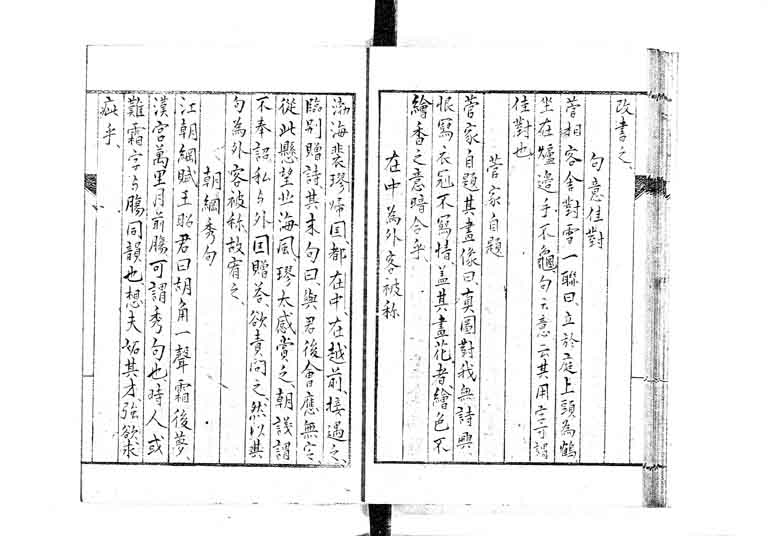 改書之、
句意佳對
菅相客舍對雪一聯曰、立於庭上頭為鶴
坐在爐邊手不龜、句云意云其用字可謂
佳對也、
菅家自題
菅家自題其畫像曰、真圖對我無詩興、
恨寫衣冠不寫情、蓋其畫花者、繪色不
繪香之意暗合乎、
在中為外客被称
渤海裴璆帰国、都在中、在越前接遇之、
臨別贈詩其末句曰、與君後會應無定、
從此懸望北海風、璆大感賞之、朝議謂
不奉詔私与外国贈答、欲責問之、然以其
句為外客被称故宥之、
朝綱秀句
江朝綱賦王昭君曰胡角一聲霜後夢、
漢宮萬里月前腸、可謂秀句也、時人或
難霜字与腸同韻也、想夫妬其才強欲求
疵乎、